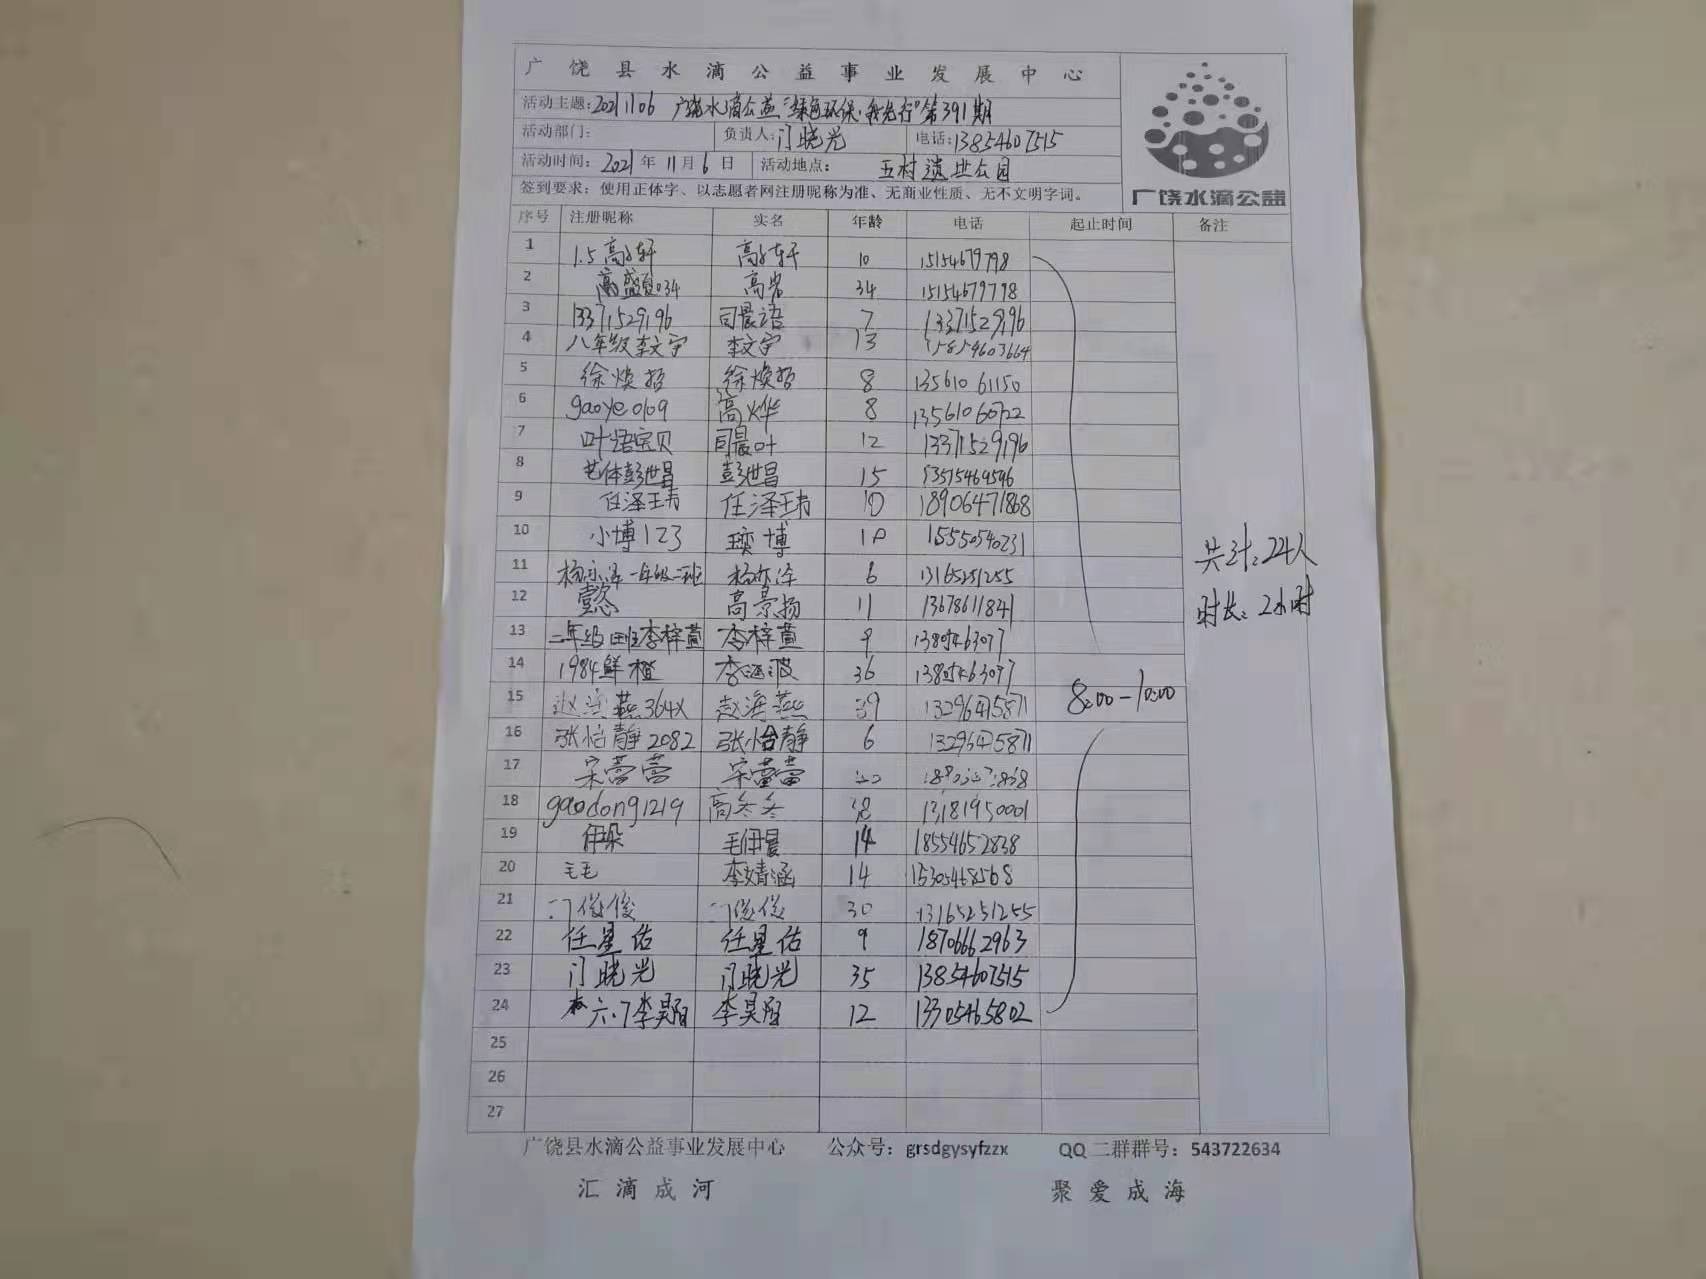 广饶县水滴公益事业发展中心
活动主题:20211106 广饶水滴公益"绿色环保·我先行"第391期
活动部门: 负责人:门晓光 电话:13854607515
活动时间: 2021年11月6日 活动地点: 五村遗址公园
签到要求:使用正体字、以志愿者网注册昵称为准、无商业性质、无不文明字词。
广饶水滴公益
序号 注册昵称 实名 年龄 电话 起止时间 备注
1 1.5高子轩 高子轩 10 15154679798
2 高盛夏034 高岩 34 15154679798
3 13371529196 司晨语 7 13371529196
4 八年级李文宇 李文宇 13 15854603664
5 徐焕哲 徐焕哲 8 13561061150
6 gaoye0109 高烨 8 13561060722
7 叶语宝贝 司晨叶 12 13371529196
8 艺体彭世昌 彭世昌 15 13575464546
9 任泽玮 任泽玮 10 18906471868
10 小博123 博 10 15550540231
共计:24人
11 杨亦泽一年级二班 杨亦泽 6 13165251255
12 懿 高景扬 11 13678611841
时长:2小时
13 二年级四班李梓萱 李梓萱 9
14 1984鲜橙 李海波 36
15 赵海燕364X 赵海燕 39 13296475871
8:00-10:00
16 张怡静2082 张怡静 6 13296475871
17 宋蕾蕾 宋蕾蕾
18 gaodong1219 高冬冬 13181950001
19 伊朵 毛伊晨 14 18554652838
20 毛毛 李婧涵 14 15305468568
21 门俊俊 门俊俊 30 13165251255
22 任星佑 任星佑 9 18706662963
23 门晓光 门晓光 35 13854607515
24 六.7李昊阳 李昊阳 12 13305465802
25
26
27
广饶县水滴公益事业发展中心 公众号:grsdgysyfzzx QQ二群群号:543722634
汇滴成河 聚爱成海